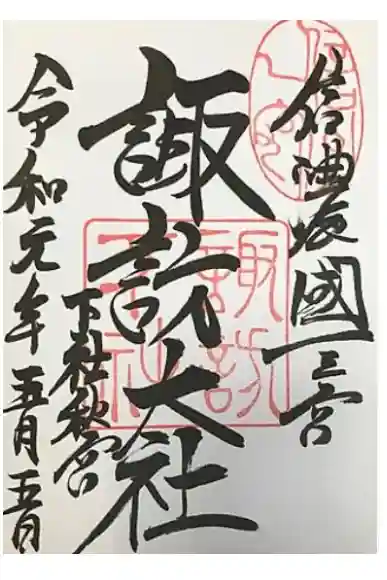 信濃國一之宮
諏訪大社
下社秋宮
令和元年五月五日
諏訪